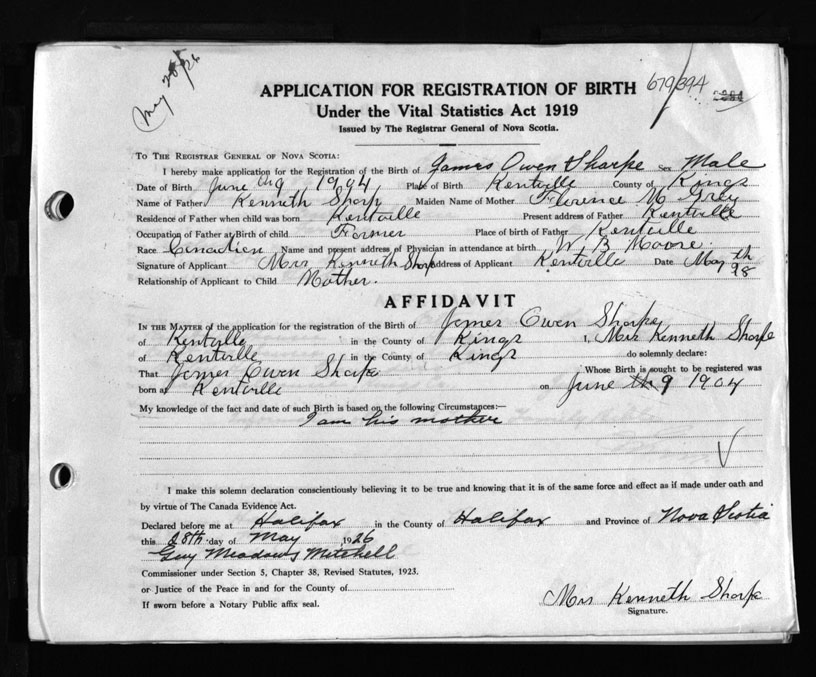 May 28th/26
APPLICATION FOR REGISTRATION OF BIRTH 679/394
Under the Vital Statistics Act 1919
Issued by The Registrar General of Nova Scotia.
TO THE REGISTRAR GENERAL OF NOVA SCOTIA:
I hereby make application for the Registration of the Birth of James Owen Sharpe Sex Male
Date of Birth June th 9 1904 Place of Birth Kentville County of Kings
Name of Father Kenneth Sharp Maiden Name of Mother Florence M Grey
Residence of Father when child was born Kentville Present address of Father Kentville
Occupation of Father at Birth of child Farmer Place of birth of Father Kentville
Race Canadien Name and present address of Physician in attendance at birth W. B Moore.
Signature of Applicant Mrs Kenneth Sharp Address of Applicant Kentville Date May th 28
Relationship of Applicant to Child Mother.
AFFIDAVIT
IN THE MATTER of the application for the registration of the Birth of James Owen Sharpe
of Kentville in the County of Kings I, Mrs Kenneth Sharpe
of Kentville in the County of Kings do solemnly declare:
That James Owen Sharpe Whose Birth is sought to be registered was
born at Kentville on June th 9 1904
My knowledge of the fact and date of such Birth is based on the following Circumstances:—
I am his mother
I make this solemn declaration conscientiously believing it to be true and knowing that it is of the same force and effect as if made under oath and
by virtue of The Canada Evidence Act.
Declared before me at Halifax in the County of Halifax and Province of Nova Scotia
this 28th day of May 1926
Guy Meadows Mitchell
Commissioner under Section 5, Chapter 38, Revised Statutes, 1923.
or Justice of the Peace in and for the County of
If sworn before a Notary Public affix seal.
Mrs Kenneth Sharpe
Signature.